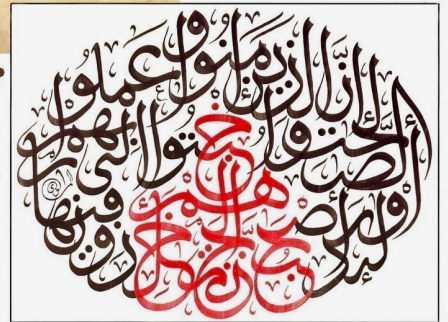 إن الذين آمنوا وعملوا الصالحات وأخبتوا إلى ربهم أولئك أصحاب الجنة هم فيها خالدون